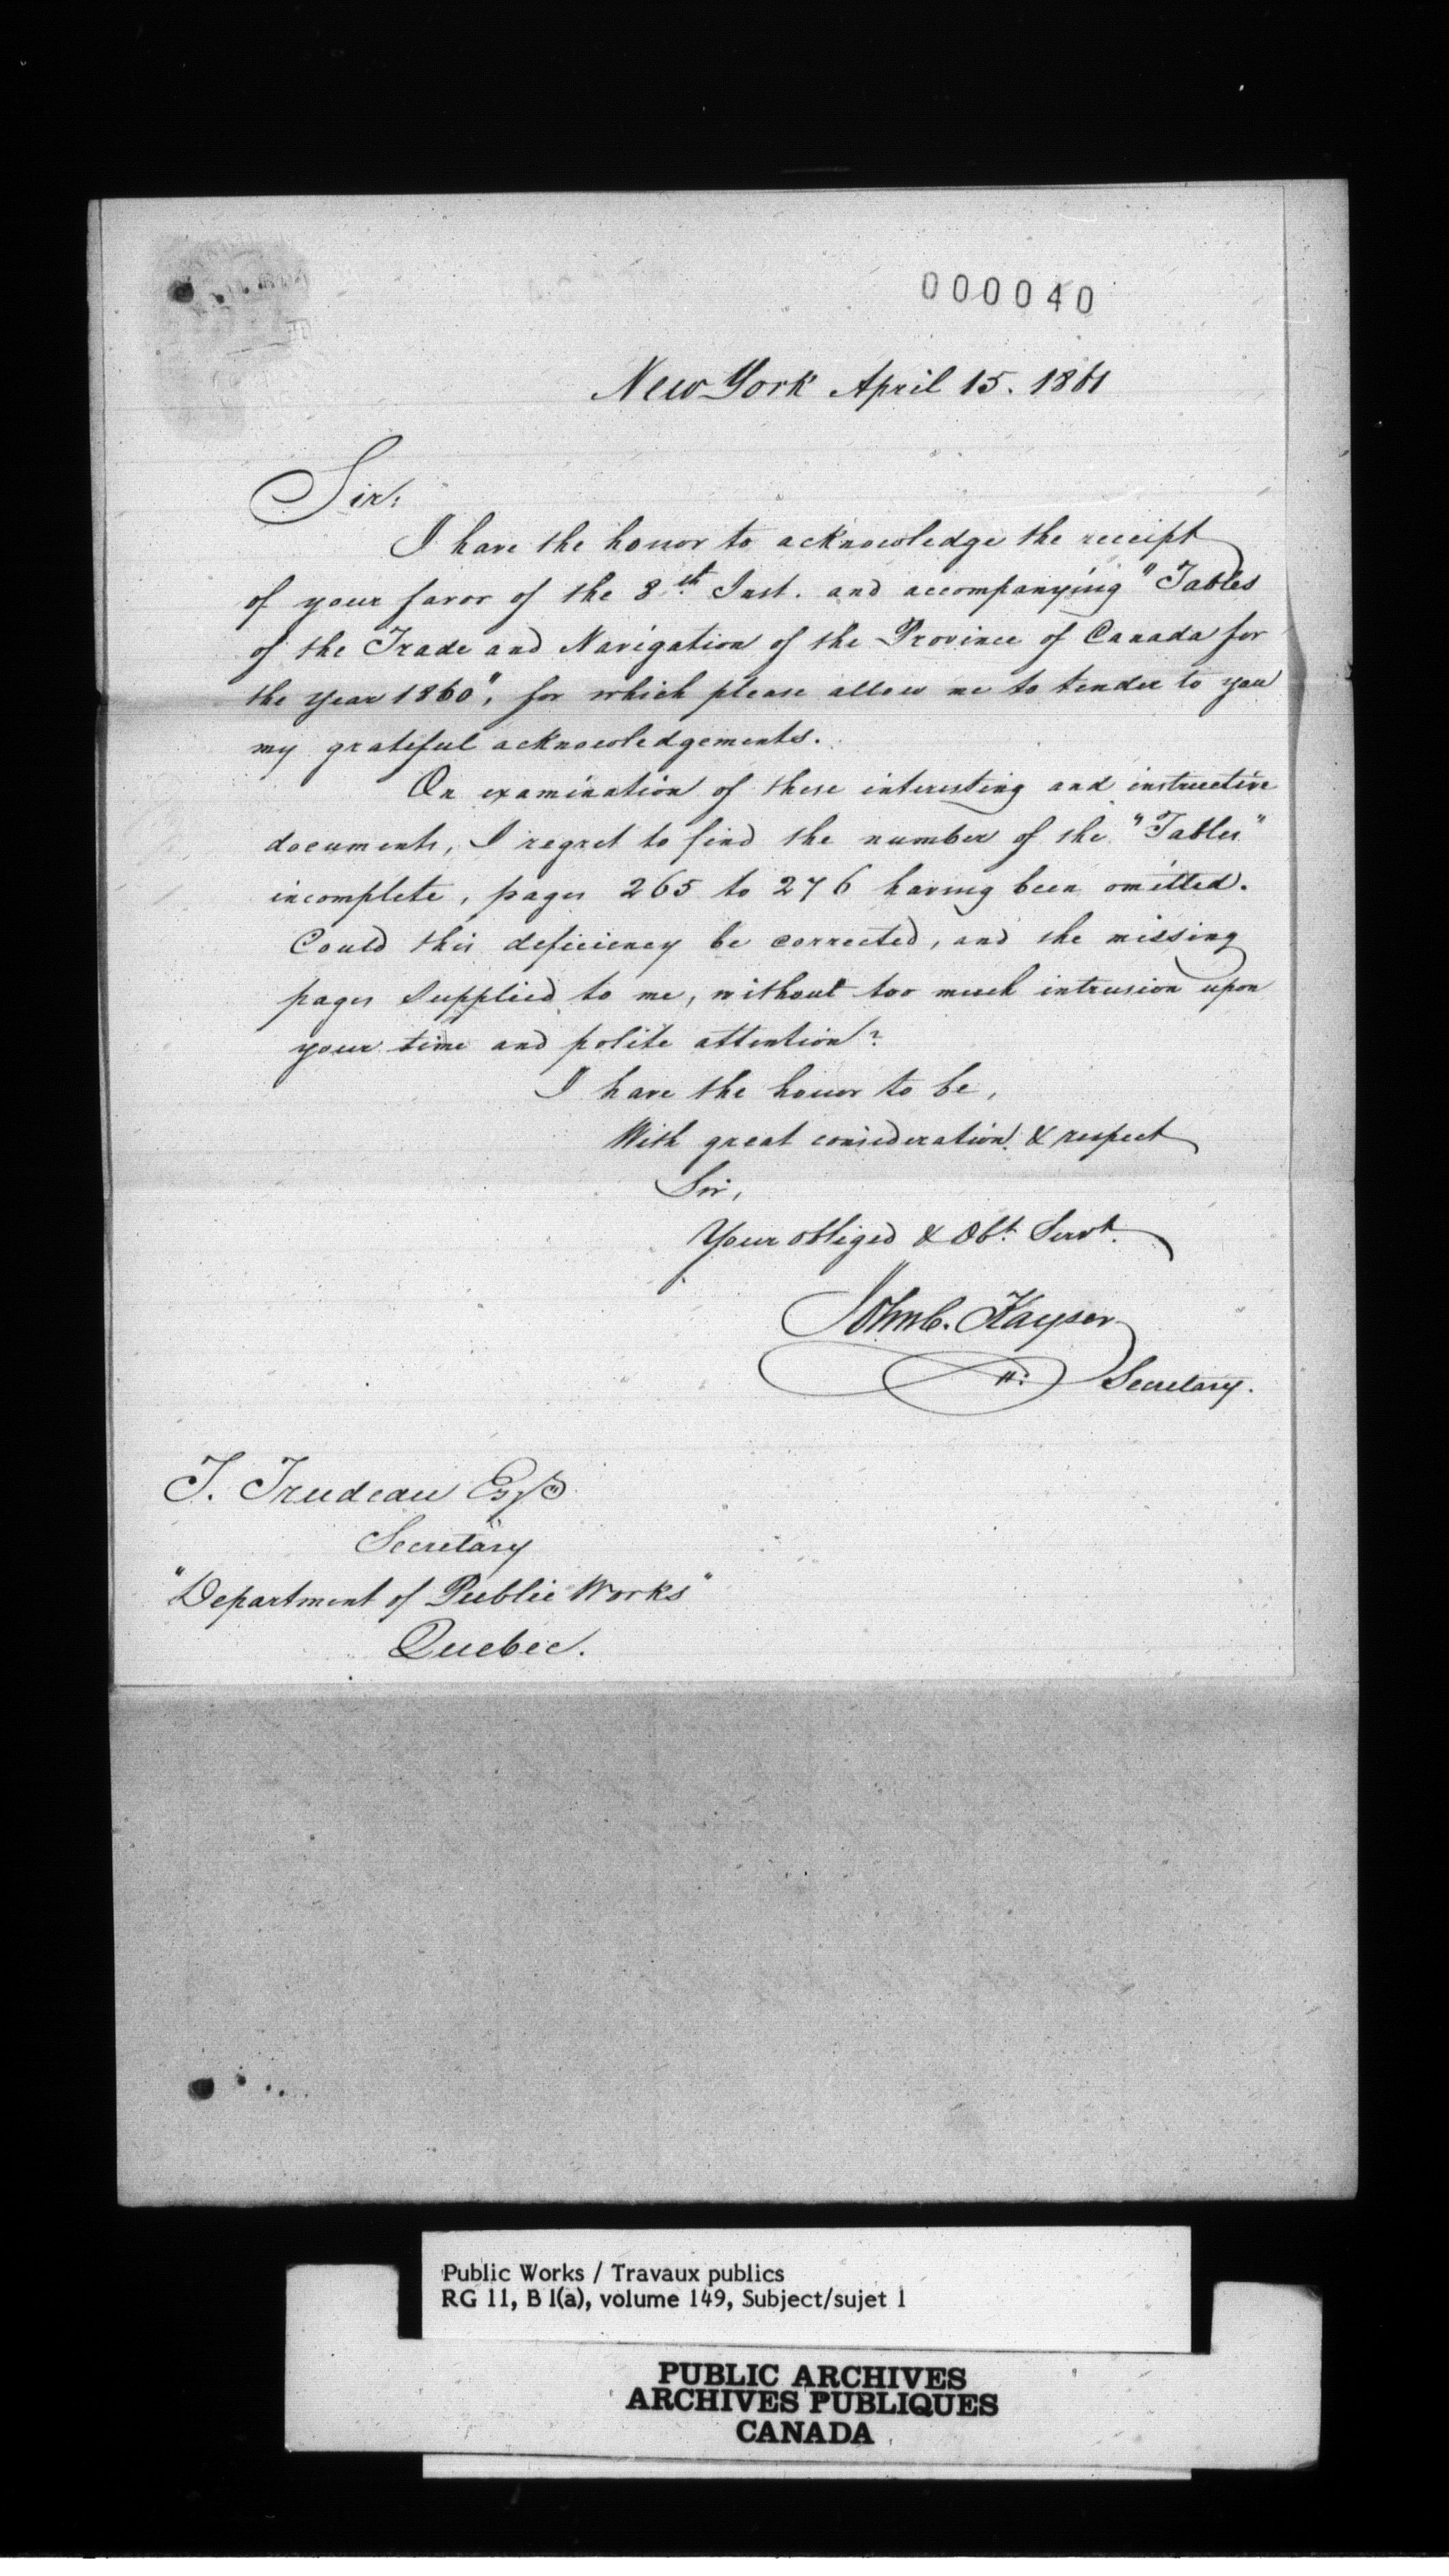 000040
New York April 15. 1861
Sir:
I have the honor to acknowledge the receipt
of your favor of the 8th Inst. and accompanying "Tables
of the Trade and Navigation of the Province of Canada for
the year 1860", for which please allow me to tender to you
my grateful acknowledgements.
On examination of these interesting and instructive
documents, I regret to find the number of the "Tables"
incomplete, pages 265 to 276 having been omitted.
Could this deficiency be corrected, and the missing
pages supplied to me, without too much intrusion upon
your time and polite attention?
I have the honor to be,
With great consideration & respect
Sir,
Your obliged & Obt. Servt.
John C. Kayser
Secretary.
T. Trudeau Esqr
Secretary
"Department of Public Works"
Quebec.
Public Works / Travaux publics
RG 11, B 1(a), volume 149, Subject/sujet 1
PUBLIC ARCHIVES
ARCHIVES PUBLIQUES
CANADA